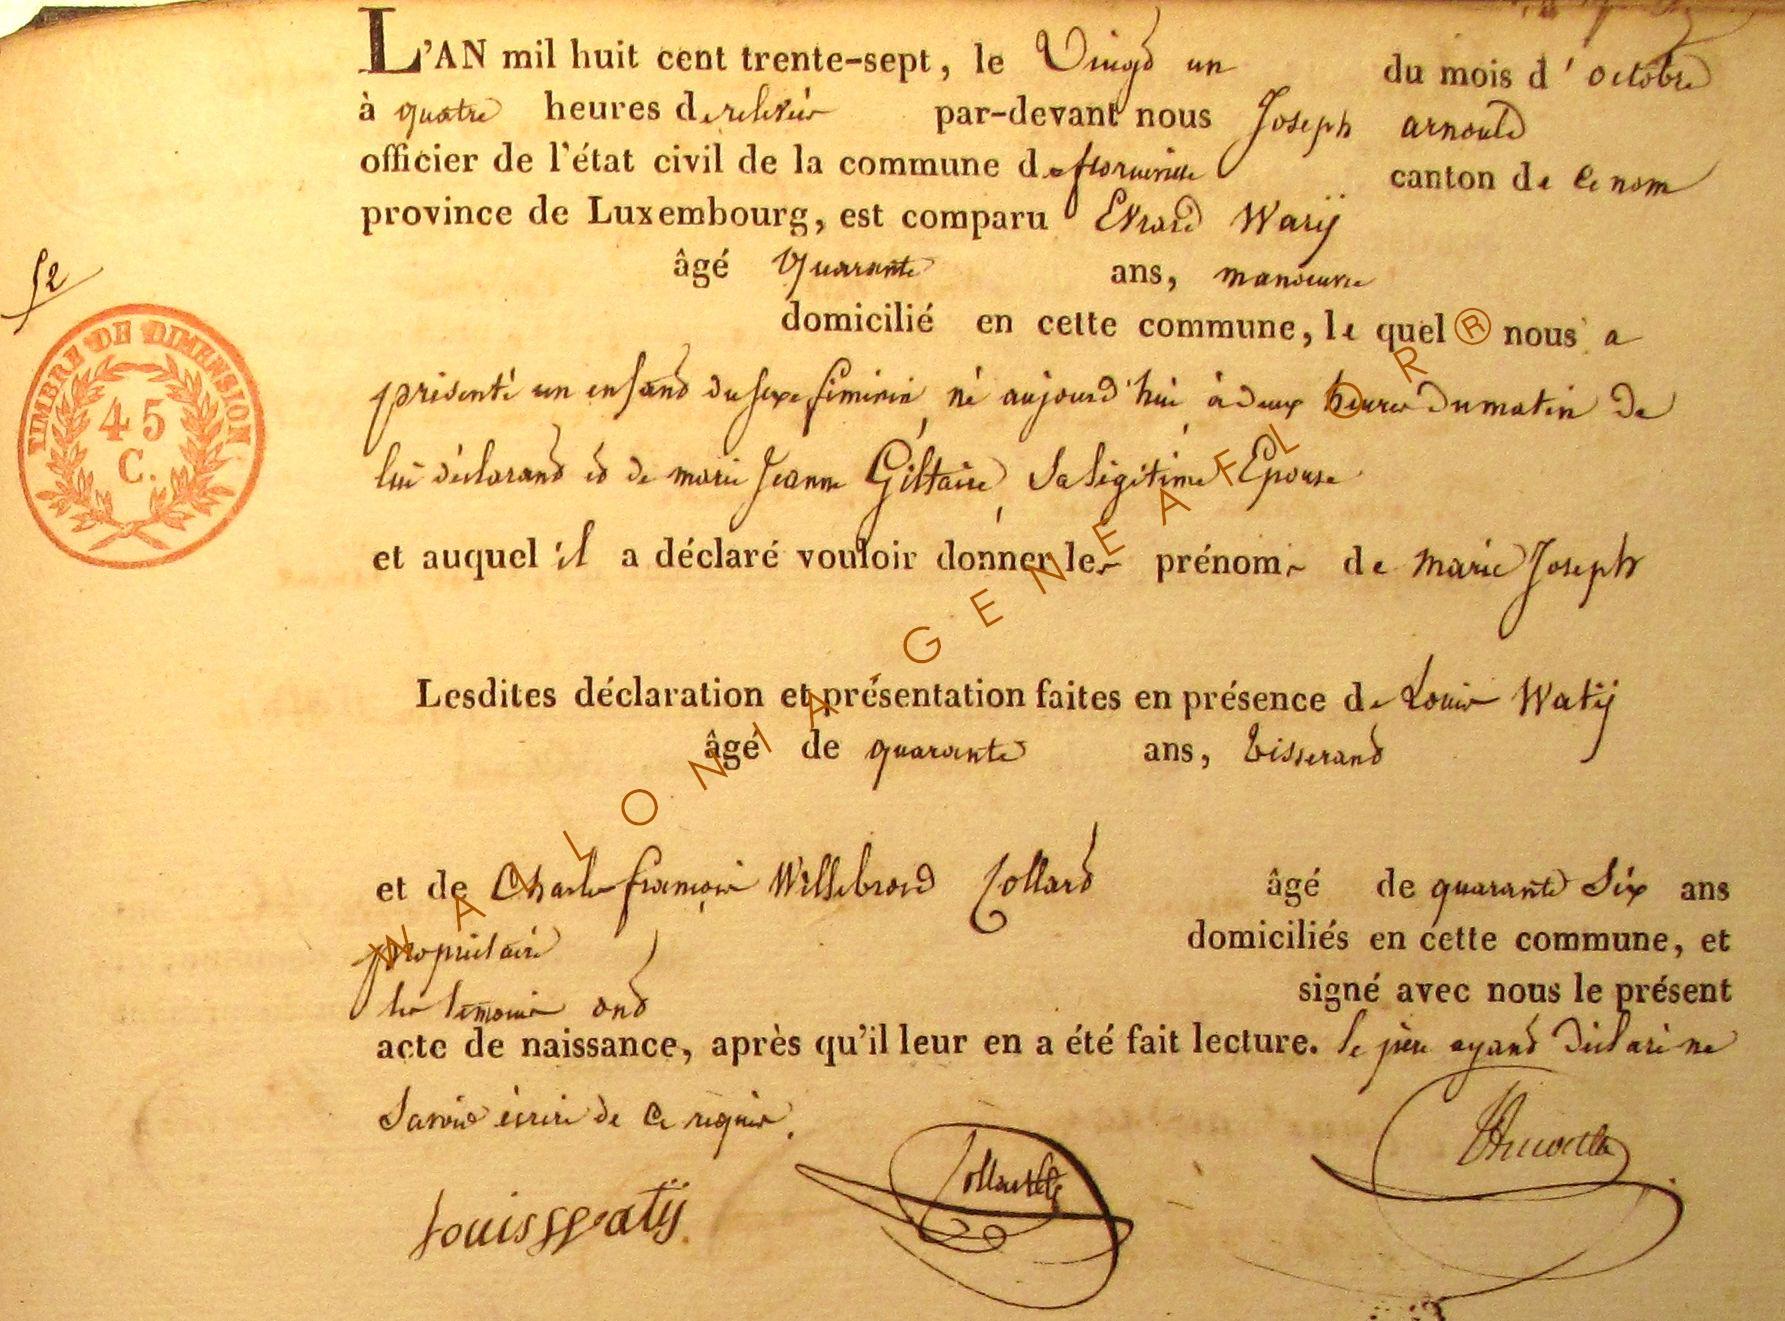 L'AN mil huit cent trente-sept, le Vingt un du mois d'octobre
à quatre heures de relevée par-devant nous Joseph arnould
officier de l'état civil de la commune de florenville canton de Ce nom
province de Luxembourg, est comparu Evrard Warij
âgé Quarante ans, manoeuvre
52
domicilié en cette commune, le quel nous a
TIMBRE DE DIMENSION
45
C.
présenté un enfant du sexe féminin, né aujourd'hui à deux heures du matin de
lui déclarant et de marie Jeanne Giltaire, Sa Légitime Epouse
et auquel il a déclaré vouloir donner les prénoms de marie Joseph
Lesdites déclaration et présentation faites en présence de Louis Watij
âgé de quarante ans, tisserand
et de Charles françois Willebrord Collard âgé de quarante Six ans
propriétaire domiciliés en cette commune, et
les témoins ont signé avec nous le présent
acte de naissance, après qu'il leur en a été fait lecture. le père ayant déclaré ne
Savoir écrire de Ce requis.
Louis Watij
WALLONIA GENEAFLOR®